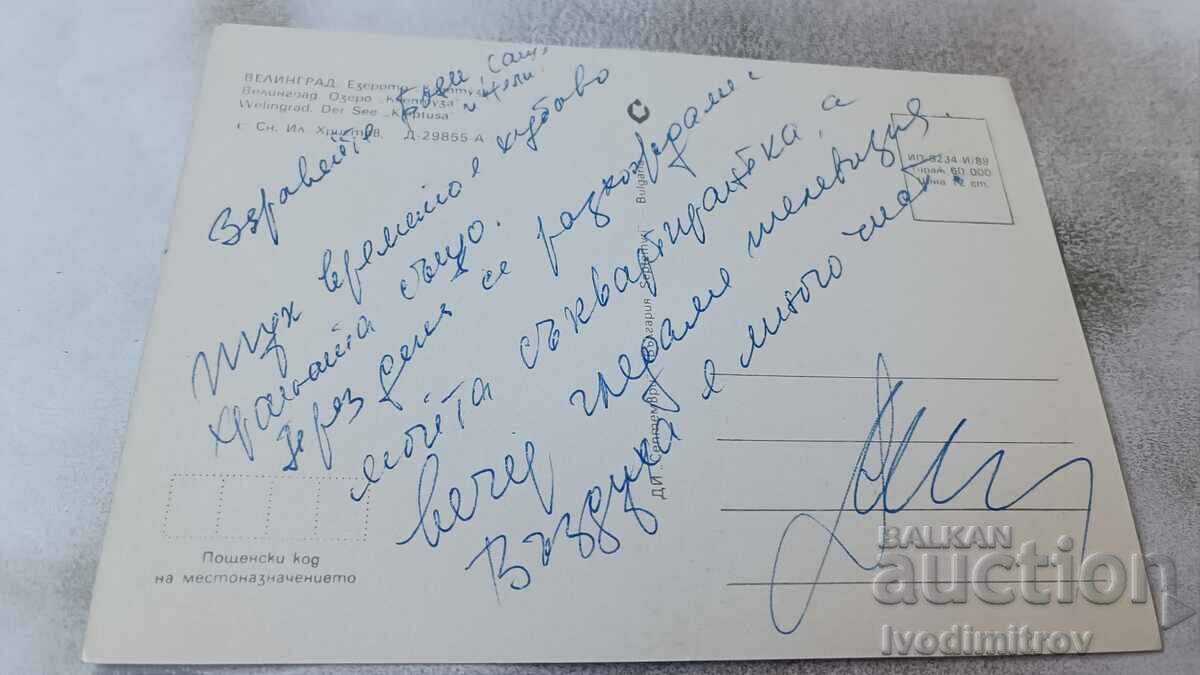 ВЕЛИНГРАД. Езерото
Велинград. Озеро „Клептуза“
Welingrad. Der See „Kleptusa“
Сн. Ил. Д-29855-А
С
ИП 8234-И/89
Тираж 60 000
Цена 12 ст.
Здравейте
и Нели
Тук времето е хубаво
храната също.
През деня се разхождаме с
мойта съквартирантка, а
вечер гледаме телевизия.
Въздуха е много чист.
ДИ „Септември“ България Septemvri Bulgaria
Пощенски код
на местоназначението
BALKAN
auction
Ivodimitrov